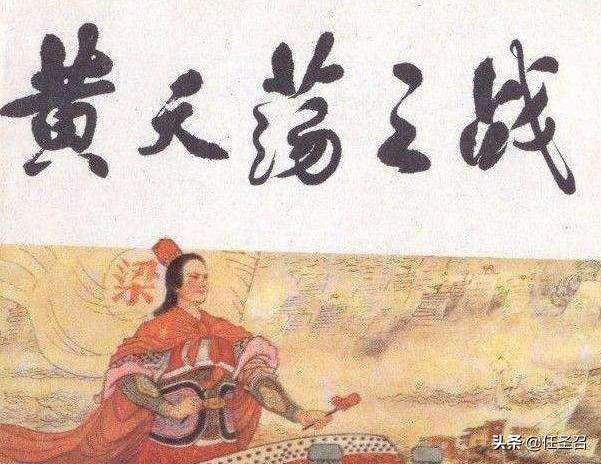 黄天荡之战
梁
头条 @任圣召